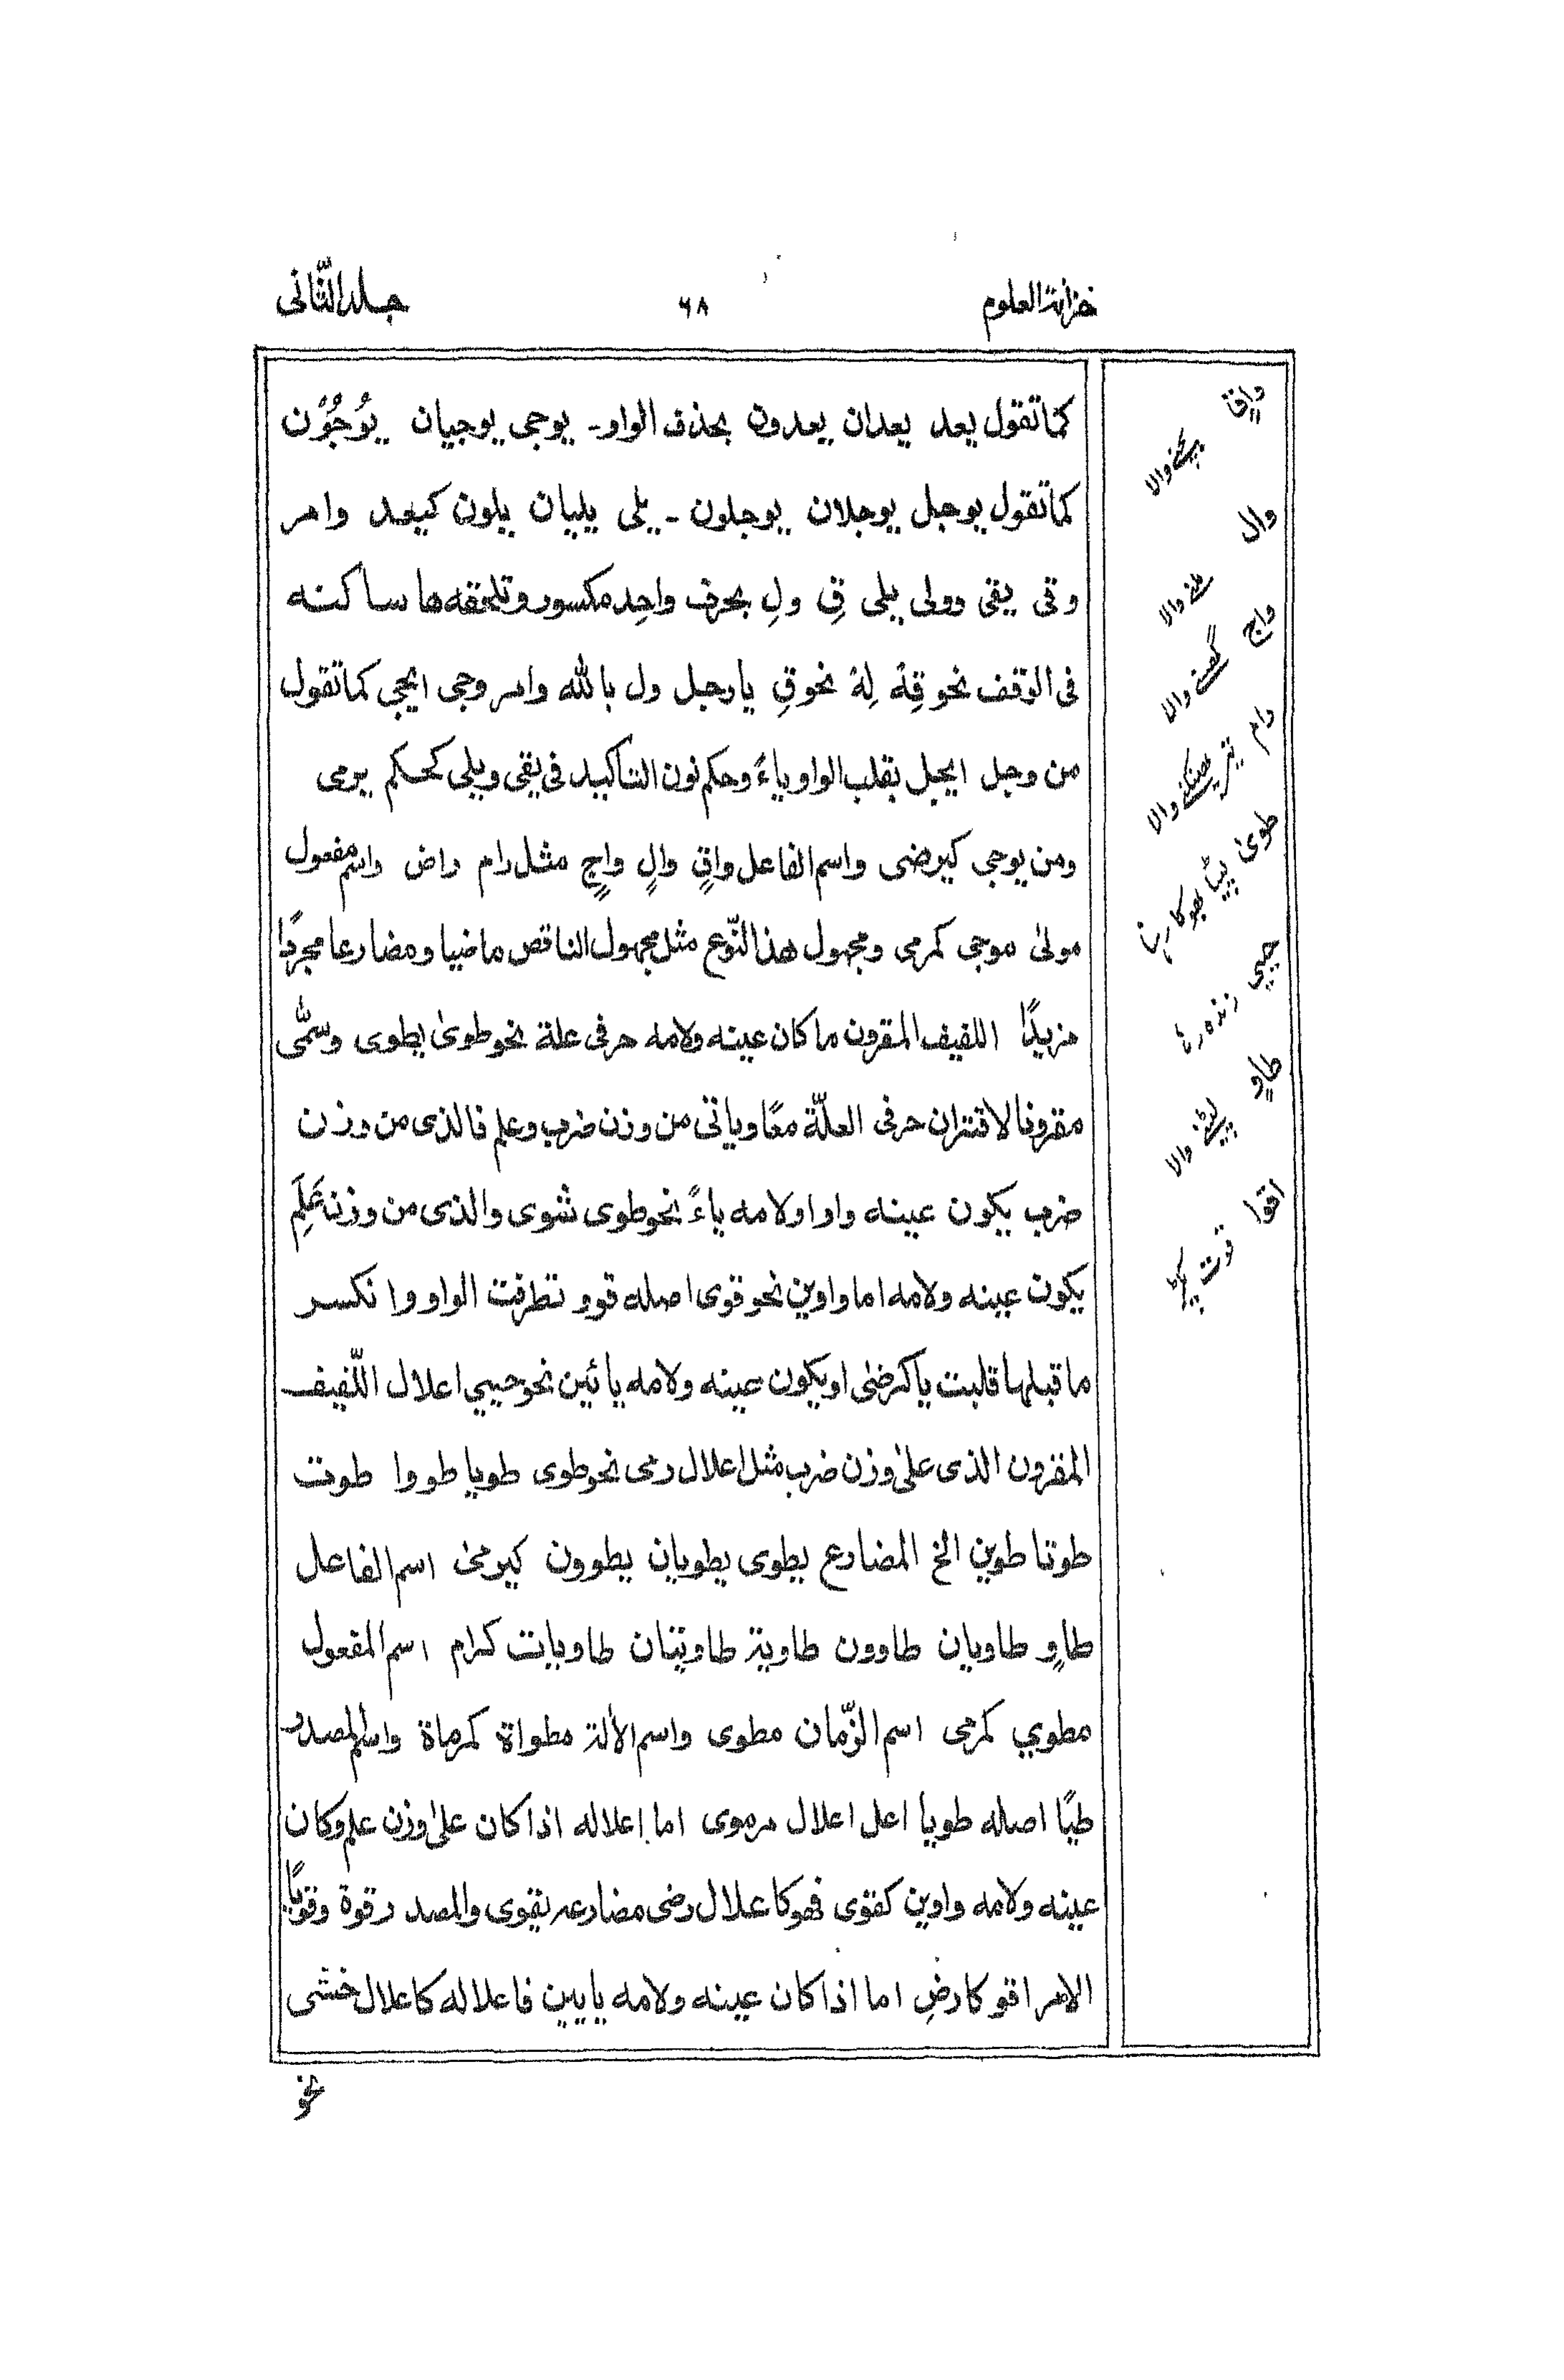 خزانة العلوم
٦٨
جلد الثّانى
كما تقول يعد يعدان يعدون بحذف الواو۔ يوجى يوجيان يوجُوْن
كما تقول يوجل يوجلان يوجلون ۔ يلى يليان يلون كيعد وامر
وقى يقى وولى يلى قِ ولِ بحرف واحد مكسور وتلحقه ها ساكنه
فى الوقف نحو قِهْ لِهْ نحو قِ يا رجل ول بالله وامر وجى ايجى كما تقول
من وجل ايجل بقلب الواو ياءً وحكم نون التاكيد فى يقى ويلى كحكم يرمى
ومن يوجى كيرضى واسم الفاعل واقٍ والٍ واجٍ مثل رام راض واسم مفعول
مولىٰ موجى كمرمى ومجهول هذ النّوع مثل مجهول الناقص ماضيا ومضارعا مجردًا
مزيدًا اللفيف المقرون ما كان عينه ولامه حرفى علة نحو طوىٰ يطوى وسمّى
مقرونا لاقتران حرفى العلّة معًا وياتى من وزن ضرب وعلم فالذى من وزن
ضرب يكون عينه واوا ولامه ياءً نحو طوى شوى والذى من وزن عَلِمَ
يكون عينه ولامه اما واوين نحو قوى اصله قوو تطرفت الواو وانكسر
ما قبلها قلبت يا كرضى او يكون عينه ولامه يائين نحو حيي اعلال اللّفيف
المقرون الذى علىٰ وزن ضرب مثل اعلال رمى نحو طوى طويا طووا طوت
طوتا طوين الخ المضارع يطوى يطويان يطوون كيرمى اسم الفاعل
طاوٍ طاويان طاوون طاوية طاويتان طاويات كرام اسم المفعول
مطوي كمرمى اسم الزّمان مطوى واسم الألة مطواة كمرماة واسم المصدر
طيًا اصله طويا اعل اعلال مرموى اما اعلاله اذا كان علىٰ وزن علم وكان
عينه ولامه واوين كقوى فهو كاعلال رضى مضارعه يقوى والمصدر قوة وقويًا
الامر اقو كارضِ اما اذا كان عينه ولامه يايين فاعلاله كاعلال خشى
نحو
واقٍ
والا
وال
ملنے والا
واج
گھسنے والا
رام
تير پھينكنے والا
طوىٰ
حيي
زندہ رہا
طاوٍ
لپيٹنے والا
اقوا
قوت پكڑ